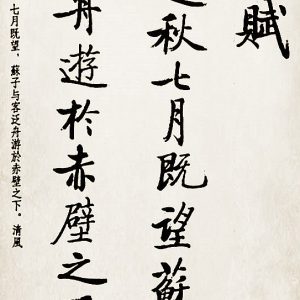 賦
秋七月既望蘇
舟遊於赤壁之
七月既望、蘇子与客泛舟游於赤壁之下。清風